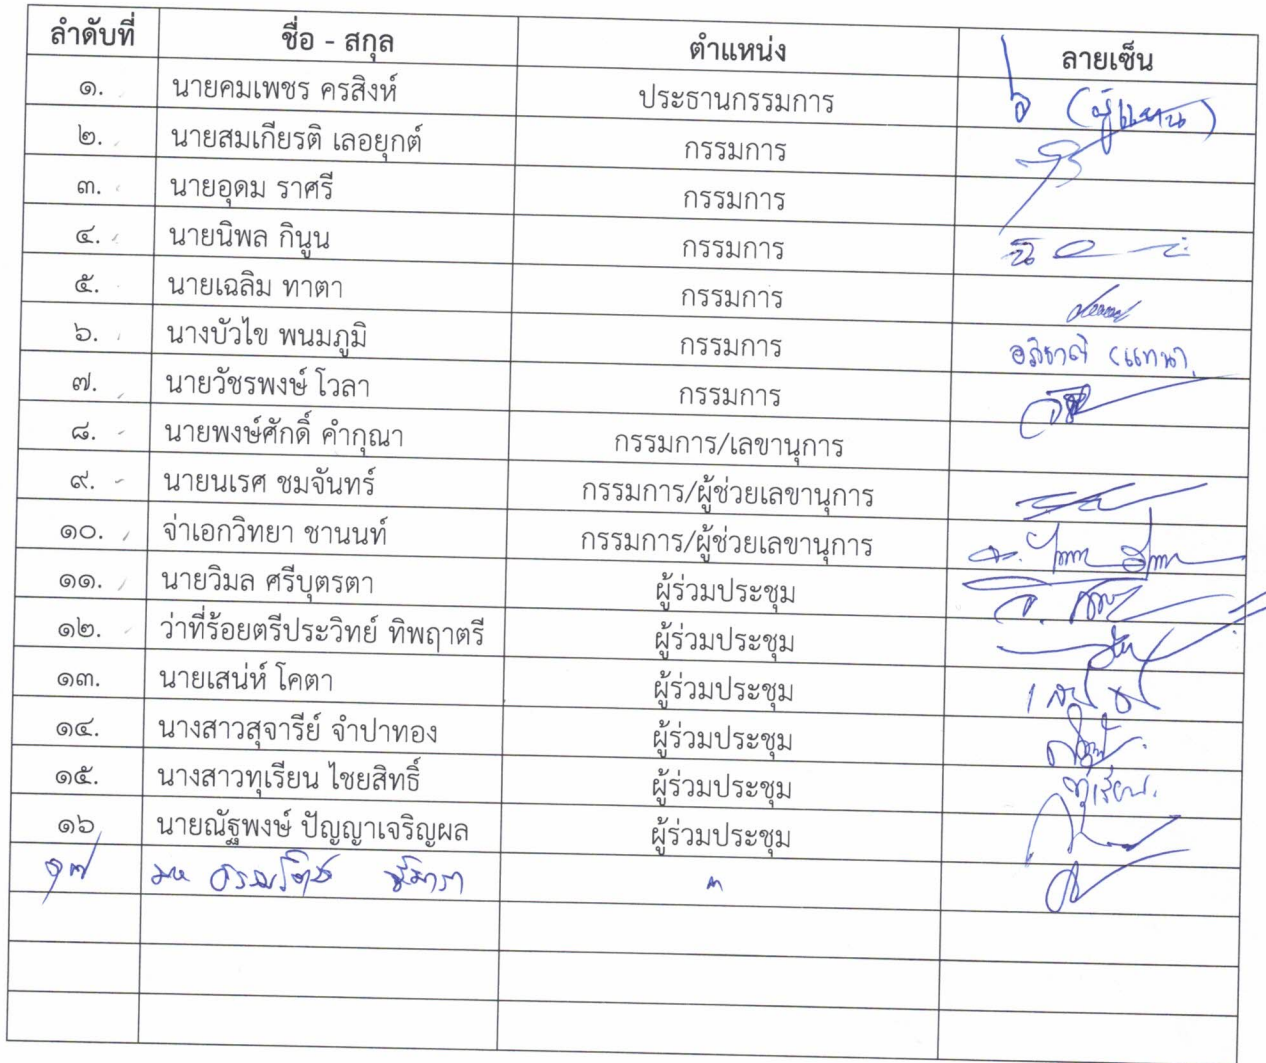 ลำดับที่ ชื่อ - สกุล ตำแหน่ง ลายเซ็น
๑. นายคมเพชร ครสิงห์ ประธานกรรมการ (ผู้แทน)
๒. นายสมเกียรติ เลอยุกต์ กรรมการ
๓. นายอุดม ราศรี กรรมการ
๔. นายนิพล กินูน กรรมการ
๕. นายเฉลิม ทาตา กรรมการ
๖. นางบัวไข พนมภูมิ กรรมการ
๗. นายวัชรพงษ์ โวลา กรรมการ
๘. นายพงษ์ศักดิ์ คำกุณา กรรมการ/เลขานุการ
๙. นายนเรศ ชมจันทร์ กรรมการ/ผู้ช่วยเลขานุการ
๑๐. จ่าเอกวิทยา ชานนท์ กรรมการ/ผู้ช่วยเลขานุการ
๑๑. นายวิมล ศรีบุตรตา ผู้ร่วมประชุม
๑๒. ว่าที่ร้อยตรีประวิทย์ ทิพฤาตรี ผู้ร่วมประชุม
๑๓. นายเสน่ห์ โคตา ผู้ร่วมประชุม
๑๔. นางสาวสุจารีย์ จำปาทอง ผู้ร่วมประชุม
๑๕. นางสาวทุเรียน ไชยสิทธิ์ ผู้ร่วมประชุม ทุเรียน.
๑๖ นายณัฐพงษ์ ปัญญาเจริญผล ผู้ร่วมประชุม
๑๗